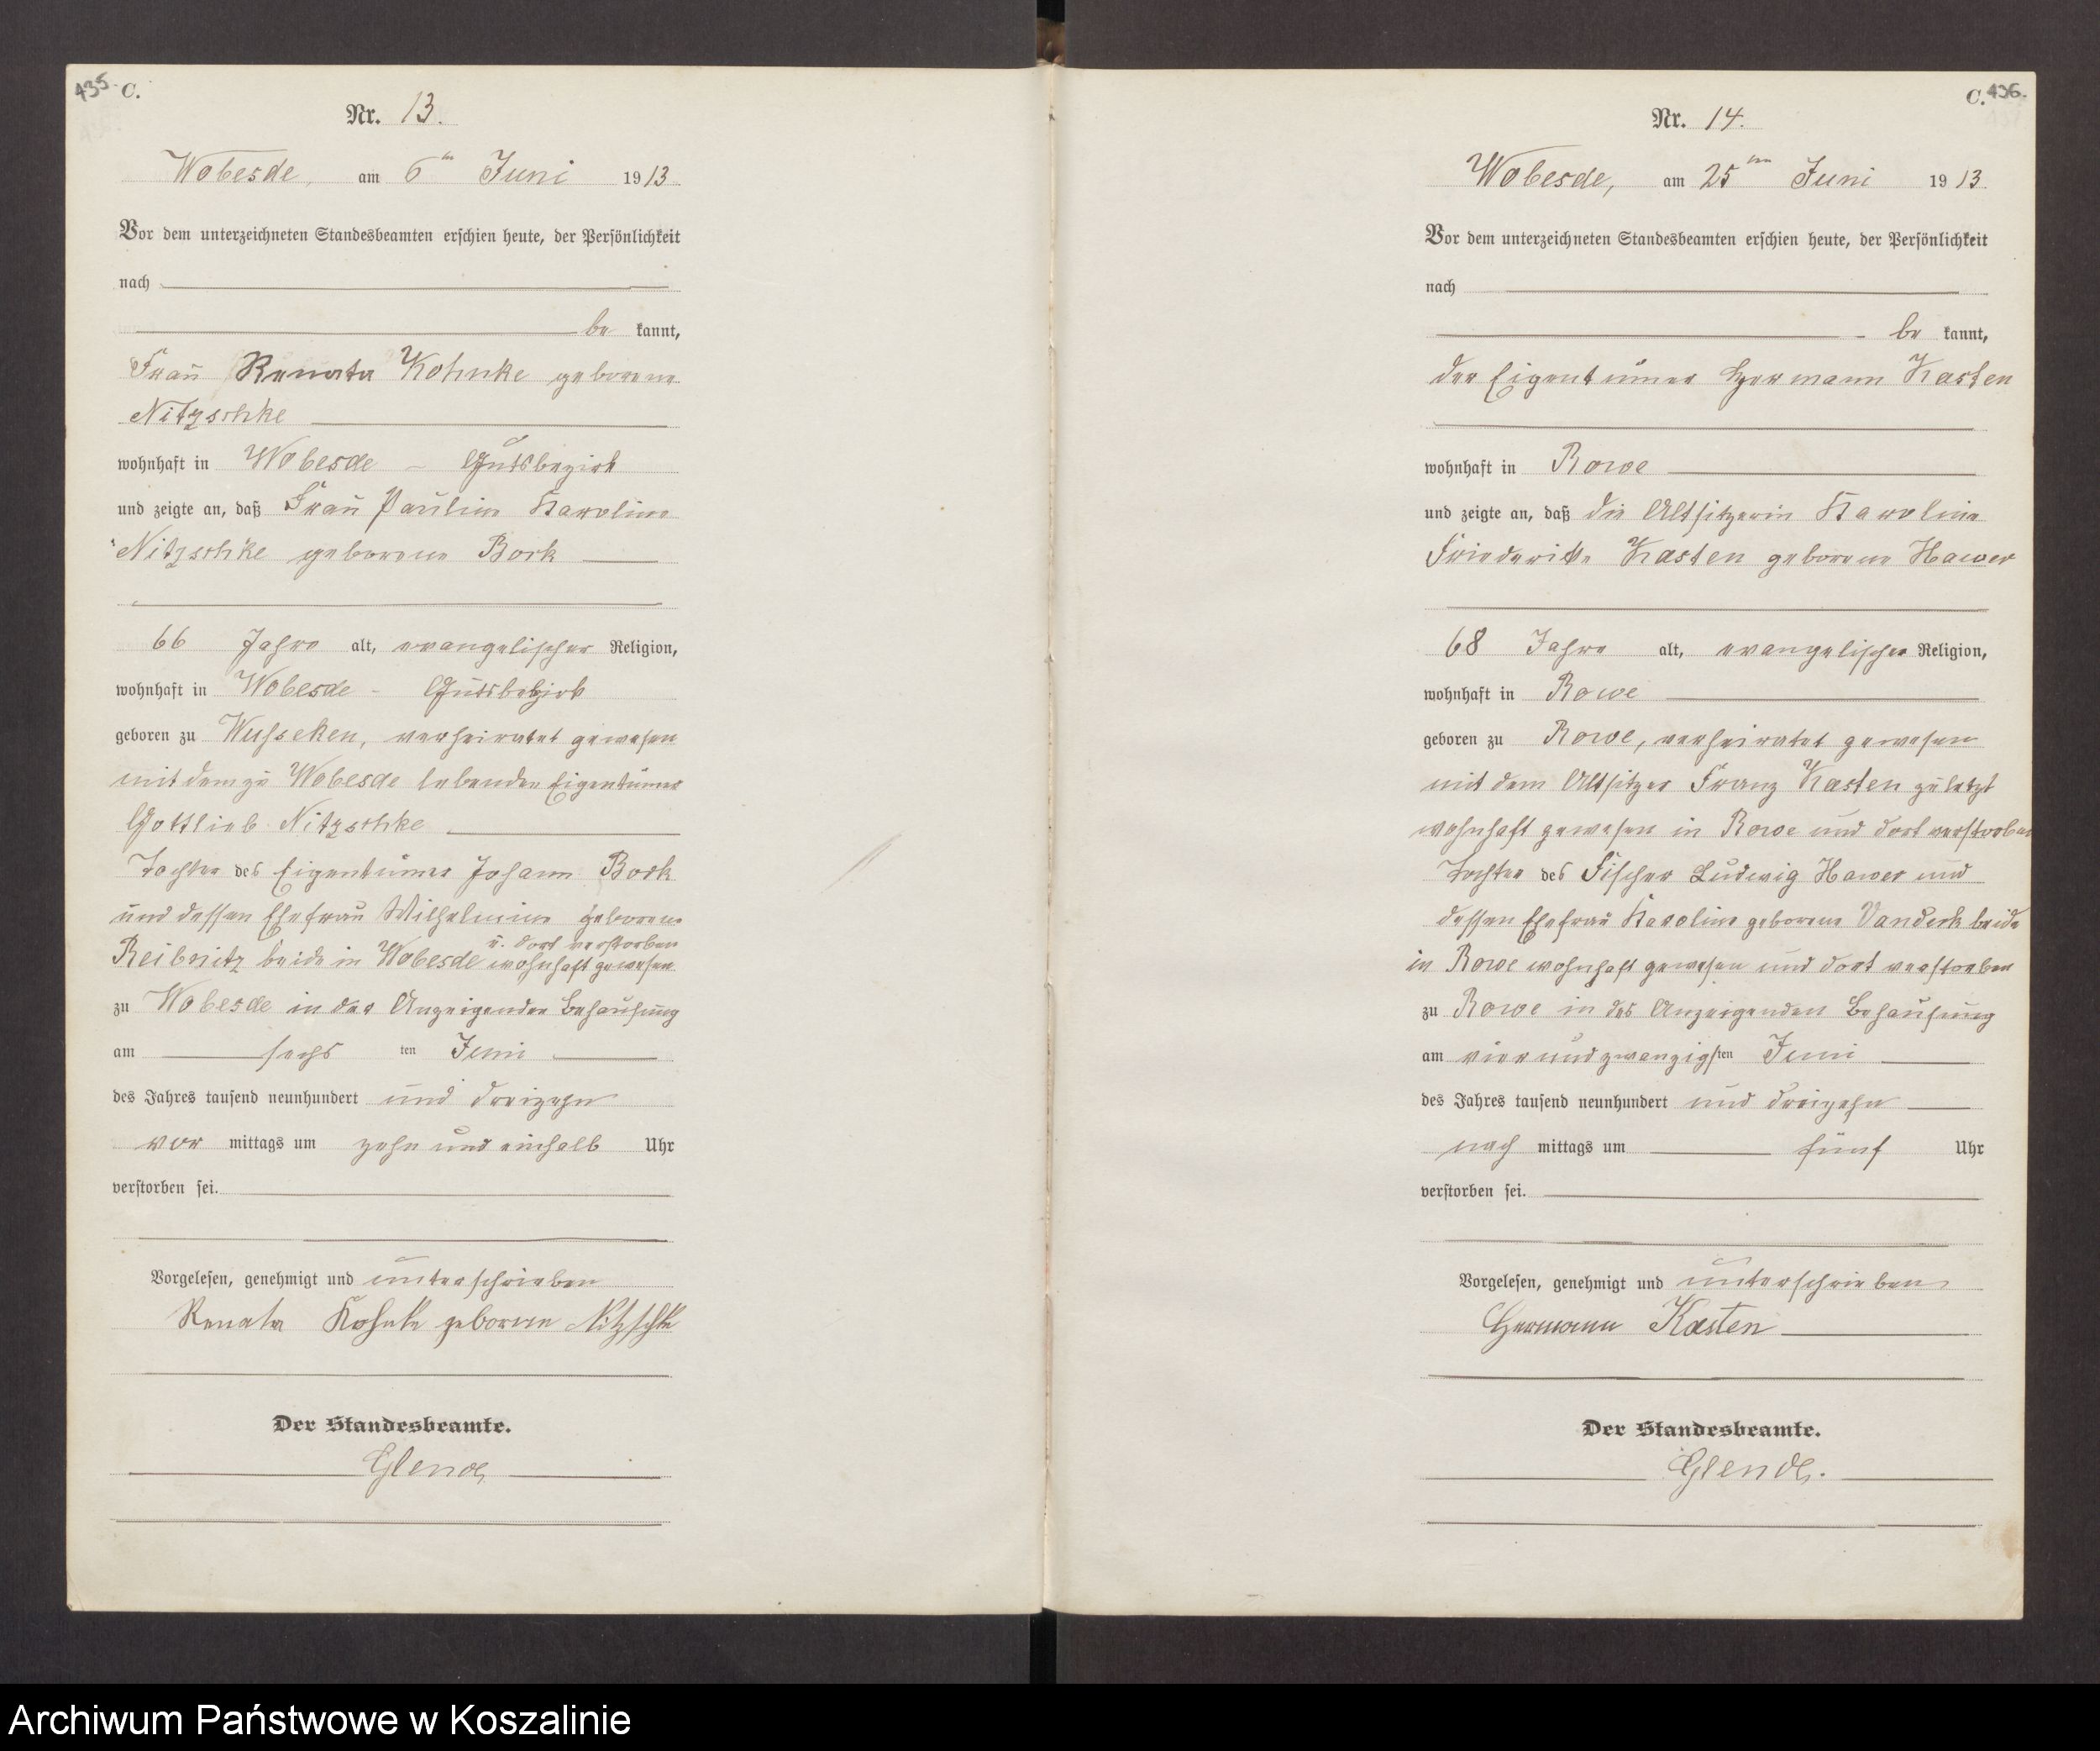 435. C.
Nr. 13.
Wobesde, am 6ten Juni 1913.
Vor dem unterzeichneten Standesbeamten erschien heute, der Persönlichkeit
nach
be kannt,
Frau Renata Kohnke geborene
Nitzschke
wohnhaft in Wobesde - Gutsbezirk
und zeigte an, daß Frau Pauline Karoline
Nitzschke geborene Bork
66 Jahre alt, evangelischer Religion,
wohnhaft in Wobesde - Gutsbezirk
geboren zu Wusseken, verheiratet gewesen
mit dem zu Wobesde lebenden Eigentümer
Gottlieb Nitzschke
Tochter des Eigentümers Johann Bork
und dessen Ehefrau Wilhelmine geborene
u. dort verstorben
Reibnitz beide in Wobesde wohnhaft gewesen
zu Wobesde in der Anzeigenden Behausung
am sechs ten Juni
des Jahres tausend neunhundert und dreizehn
vor mittags um zehn und einhalb Uhr
verstorben sei.
Vorgelesen, genehmigt und unterschrieben
Renata Kohnke geborene Nitzschke
Der Standesbeamte.
C. 436.
Nr. 14.
Wobesde, am 25ten Juni 1913.
Vor dem unterzeichneten Standesbeamten erschien heute, der Persönlichkeit
nach
be kannt,
der Eigentümer Hermann Kasten
wohnhaft in Rowe
und zeigte an, daß die Altsitzerin Karoline
Friederike Kasten geborene Hawer
68 Jahre alt, evangelischer Religion,
wohnhaft in Rowe
geboren zu Rowe, verheiratet gewesen
mit dem Altsitzer Franz Kasten zuletzt
wohnhaft gewesen in Rowe und dort verstorben
Tochter des Fischer Ludwig Hawer und
dessen Ehefrau Karoline geborene Vanderk beide
in Rowe wohnhaft gewesen und dort verstorben
zu Rowe in des Anzeigenden Behausung
am vierundzwanzigsten Juni
des Jahres tausend neunhundert und dreizehn
nach mittags um fünf Uhr
verstorben sei.
Vorgelesen, genehmigt und unterschrieben
Hermann Kasten
Der Standesbeamte.
Archiwum Państwowe w Koszalinie